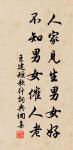 人家見生男女好
不知男女催人老
王建短歌行詞典網